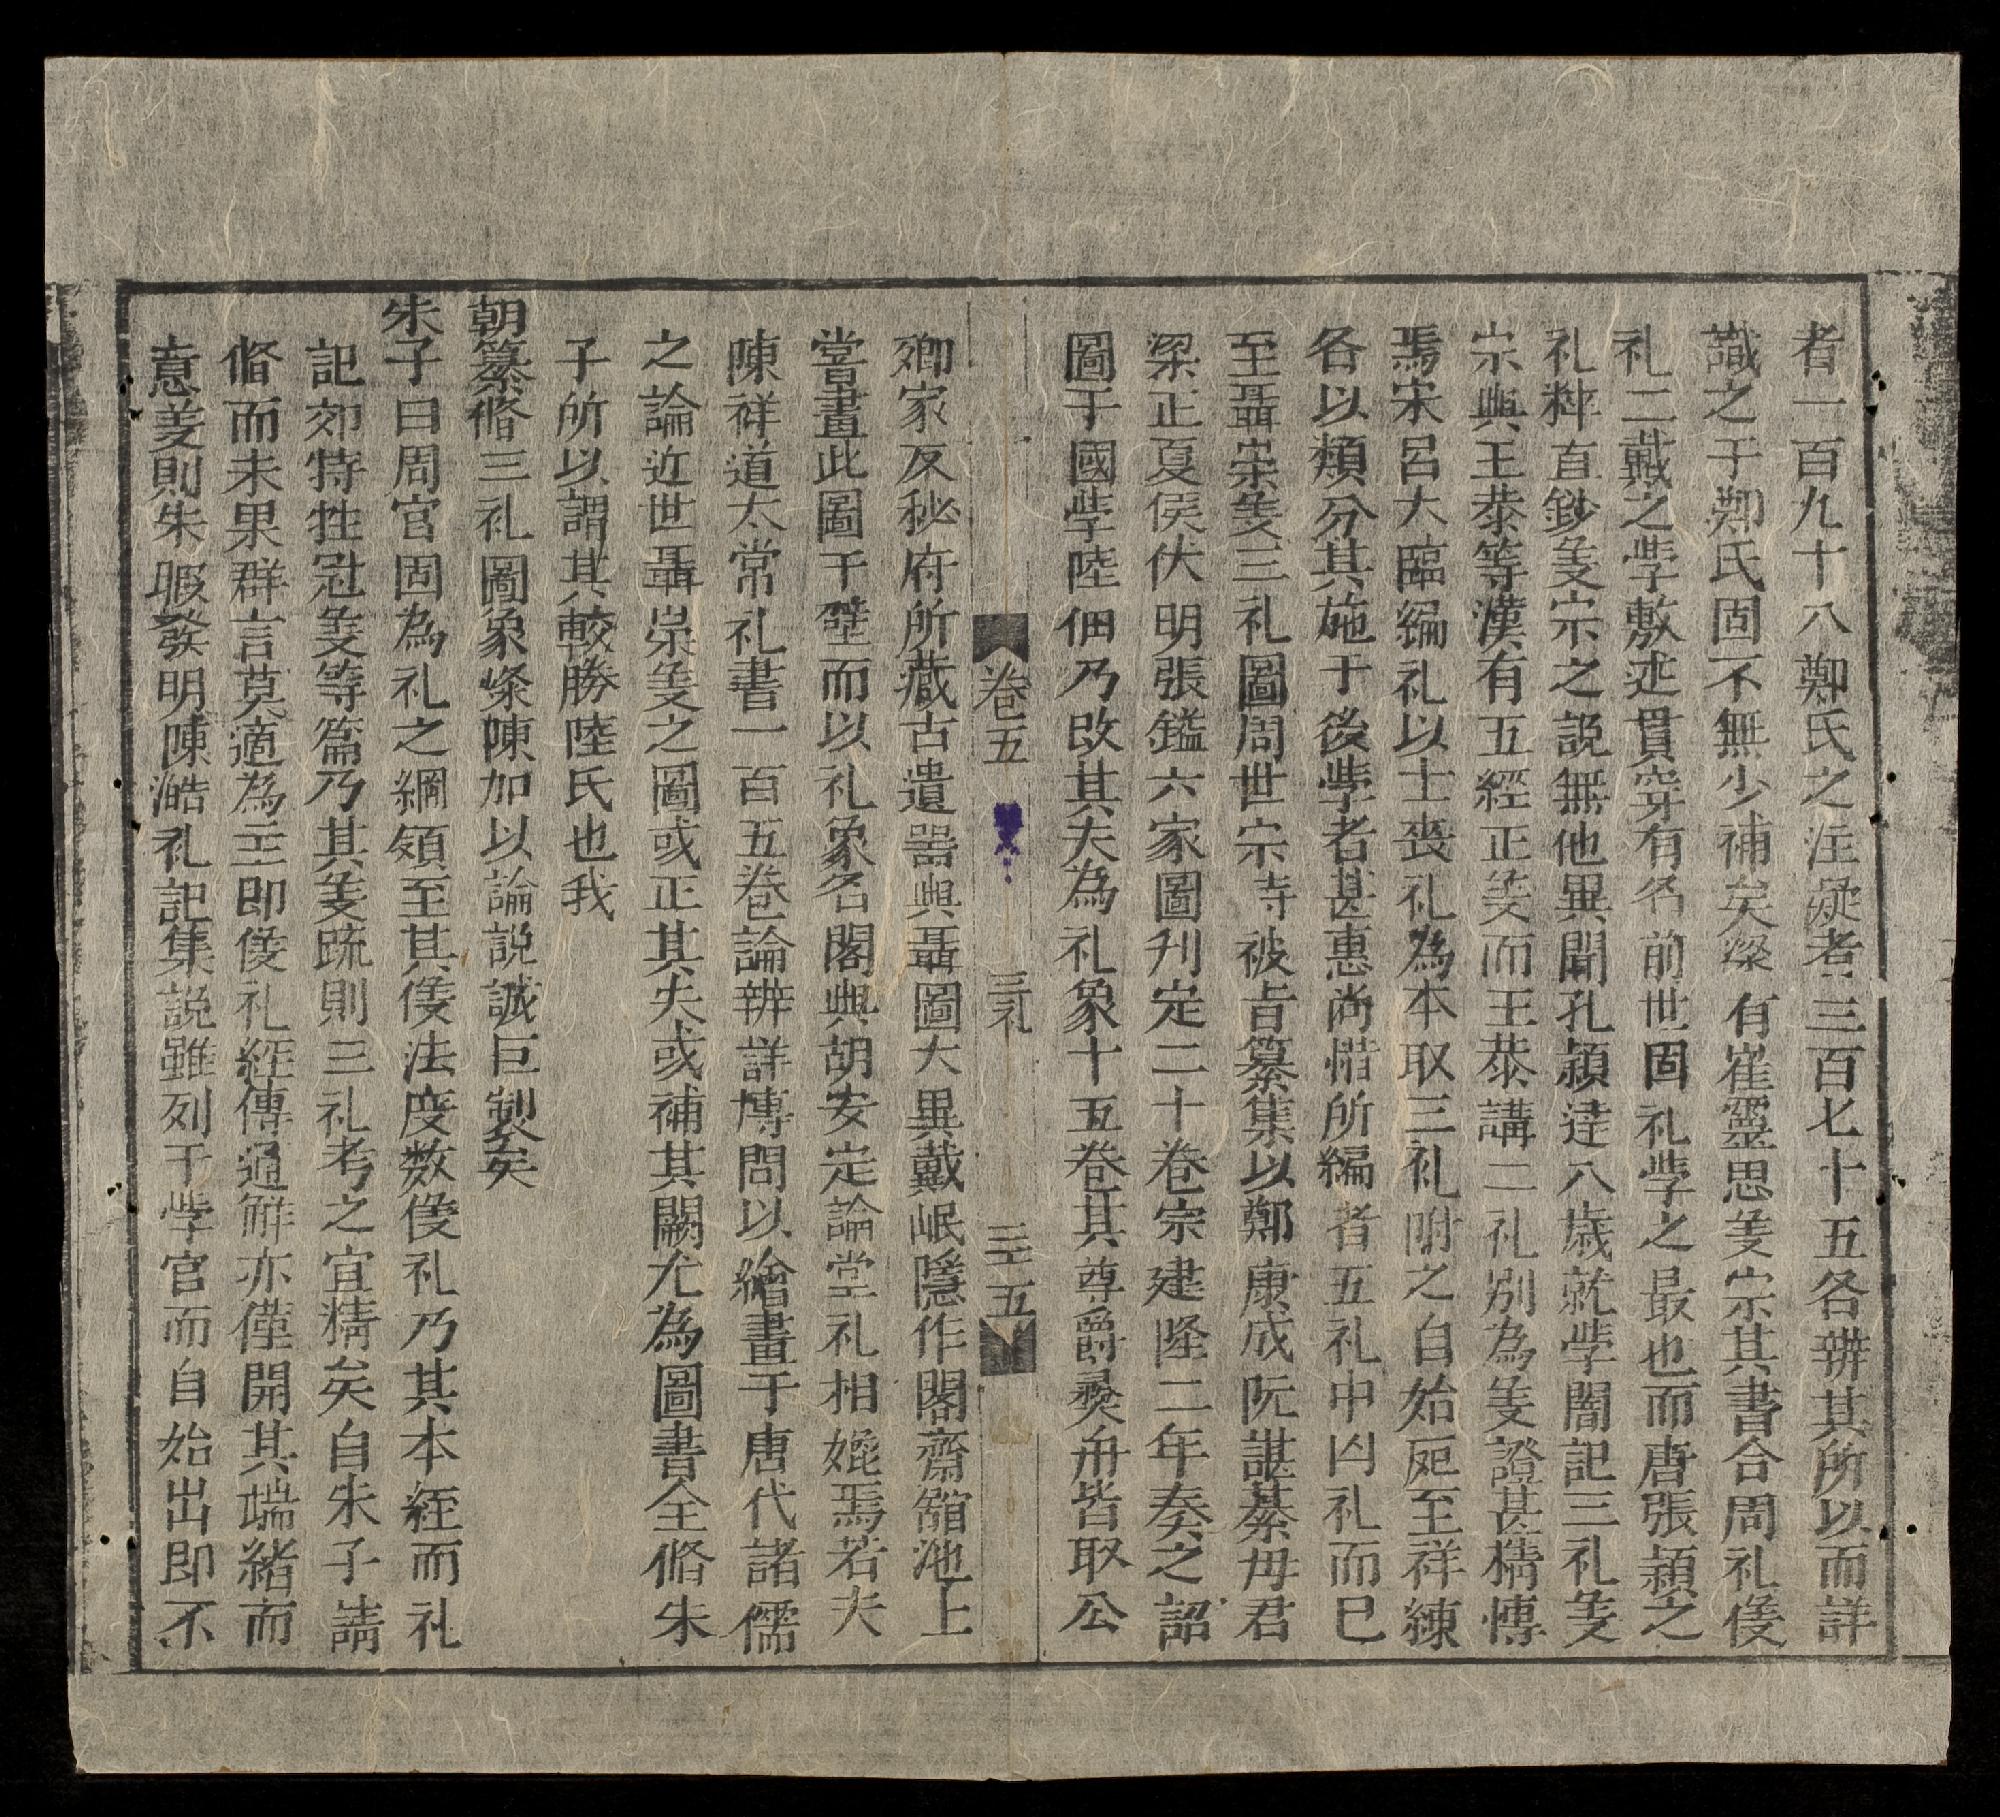 者一百九十八鄭氏之注疑者三百七十五各辨其所以而詳
識之于鄭氏固不無少補矣梁有崔靈思義宗其書合周礼儀
礼二戴之學敷述貫穿有名前世固礼學之最也而唐張頴之
礼粹直鈔義宗之説無他異聞孔頴達八歳就學闇記三礼義
宗與王恭等漢有五經正義而王恭講二礼別為義證甚精愽
焉宋呂大臨編礼以士喪礼為本取三礼附之自始死至祥練
各以類分其施于後學者甚惠尚惜所編者五礼中凶礼而已
至聶崇義三礼圖周世宗寺被旨纂集以鄭康成阮諶綦毋君
梁正夏侯伏明張鎰六家圖刋定二十卷宗建隆二年奏之詔
圖于國學陸佃乃改其失為礼象十五卷其尊爵彛舟皆取公
卷五 三礼 三五
卿家及秘府所藏古遺噐與聶圖大異戴岷隱作閣齋舘池上
嘗畫此圖于壁而以礼象名閣與胡安定論堂礼相媲焉若夫
陳祥道太常礼書一百五卷論辨詳博問以繪畫于唐代諸儒
之論近世聶崇義之圖或正其失或補其闕尤為圖書全脩朱
子所以謂其較勝陸氏也我
朝纂脩三礼圖象條陳加以論説誠巨製矣
朱子曰周官固為礼之綱領至其儀法度数儀礼乃其本經而礼
記郊特牲冠義等篇乃其義疏則三礼考之宜精矣自朱子請
脩而未果群言莫適為主即儀礼經傳通觧亦僅開其端緒而
意義則朱暇發明陳澔礼記集説雖列于學官而自始出即不